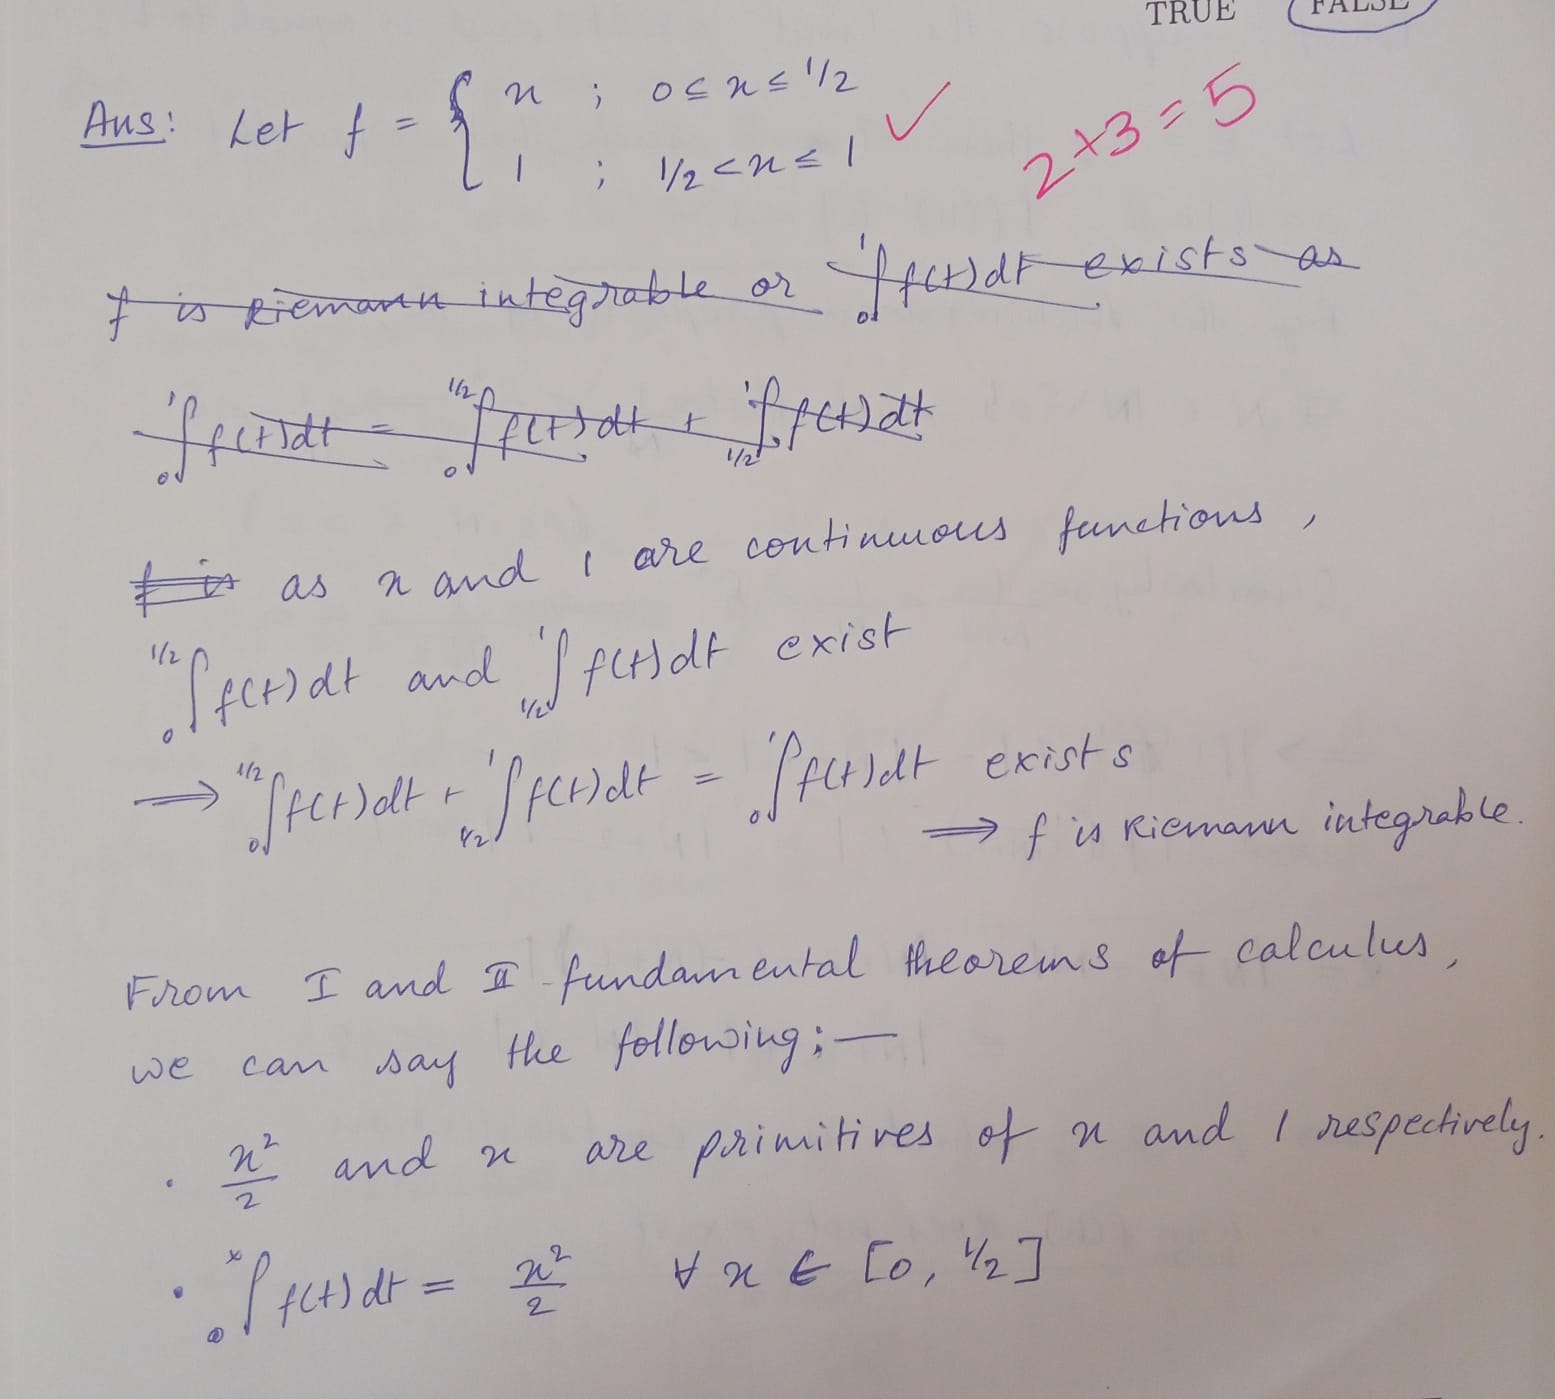 TRUE FALSE
Ans: Let f = { x ; 0 ≤ x ≤ 1/2
1 ; 1/2 < x ≤ 1 ✓
2+3=5
f is Riemann integrable or ∫₀¹ f(t)dt exists as
∫₀¹ f(t)dt = ∫₀^{1/2} f(t)dt + ∫_{1/2}^1 f(t)dt
f is as x and 1 are continuous functions,
∫₀^{1/2} f(t)dt and ∫_{1/2}^1 f(t)dt exist
⟹ ∫₀^{1/2} f(t)dt + ∫_{1/2}^1 f(t)dt = ∫₀¹ f(t)dt exists
⟹ f is Riemann integrable.
From I and II fundamental theorems of calculus,
we can say the following;—
• x²/2 and x are primitives of x and 1 respectively.
• ∫₀^x f(t)dt = x²/2 ∀ x ∈ [0, 1/2]